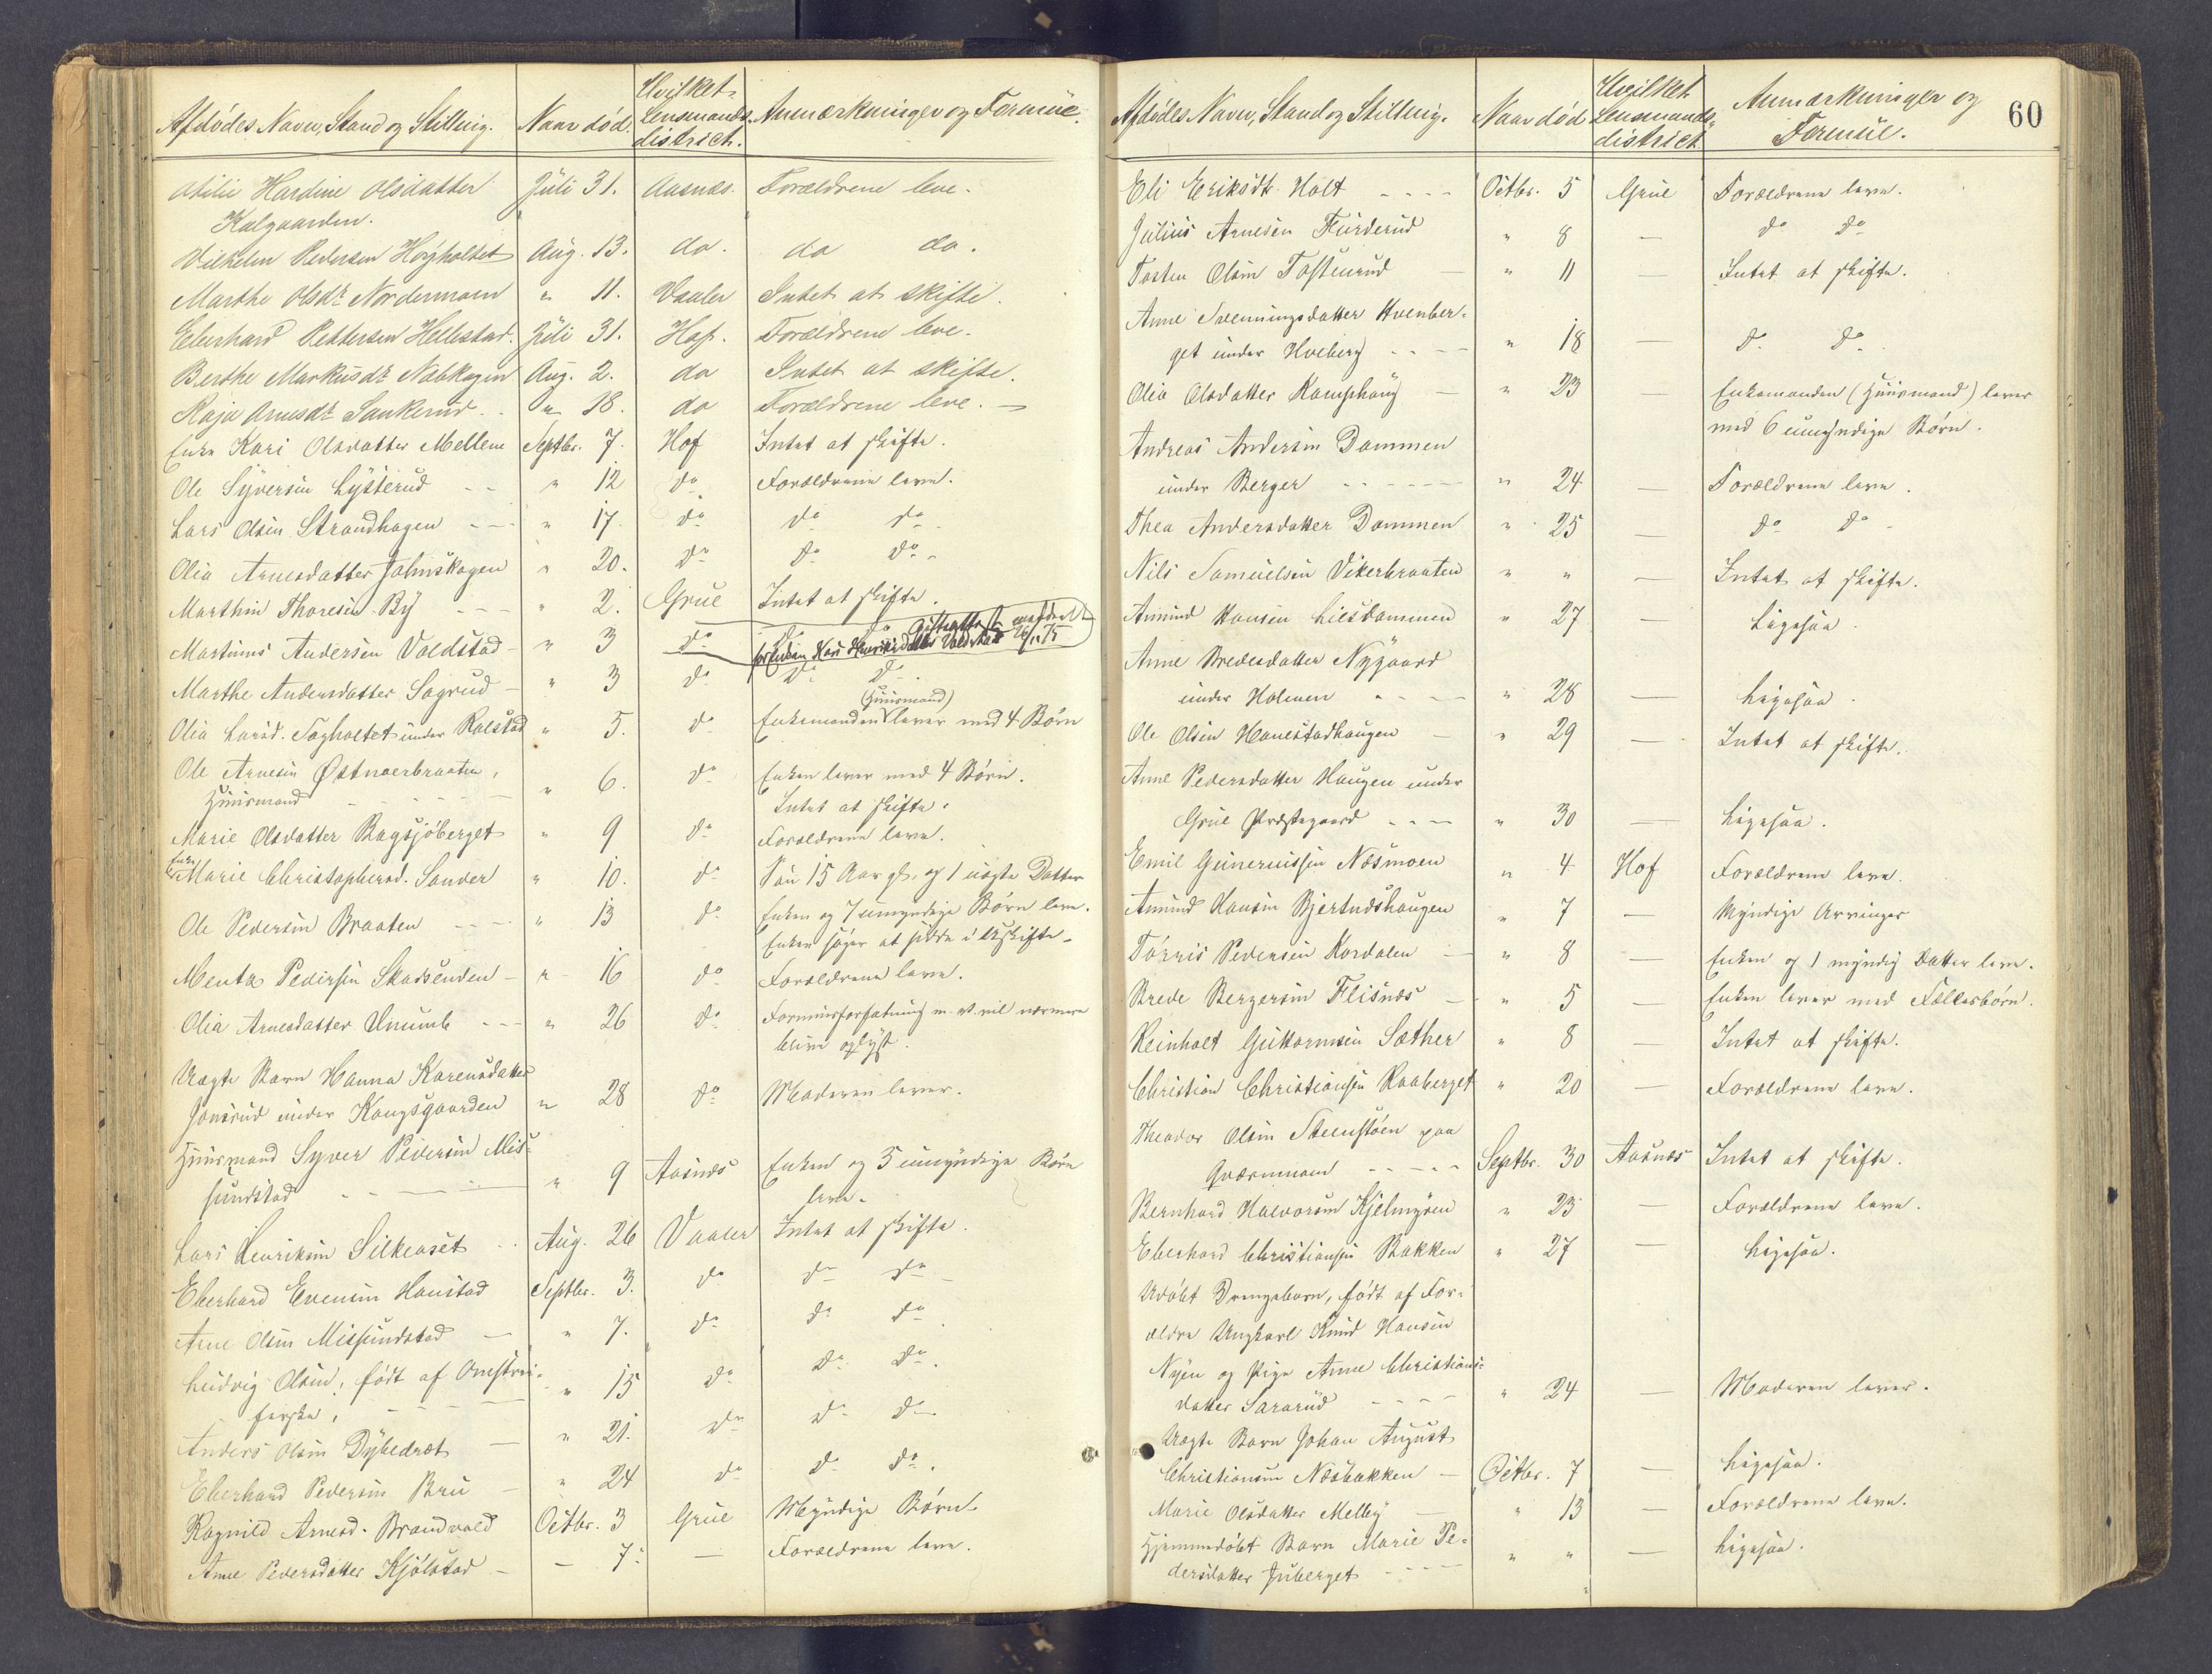 Afdødes Navn, Stand og Stilling. Naar død. Hvilket Lensmands-district. Anmærkninger og Formue.
Otilie Hardine Olsdatter Juli 31. Aasnæs. Forældrene leve.
Kalgaarden.
Vilhelm Pedersen Høgholtet Aug. 13. do. do do.
Marthe Olsdr. Nordermoen " 11. Vaaler Intet at skifte.
Eberhard Pettersen Hellestad. Juli 31. Hof. Forældrene leve.
Berthe Markusdr. Nabkagen Aug. 2. do Intet at skifte.
Kaja Arnesdr. Sankerud " 18. do Forældrene leve.
Enke Kari Olsdatter Mellem Septbr. 7. Hof Intet at skifte.
Ole Syversen Lysterud " 12 do Forældrene leve.
Lars Olsen Strandhagen " 17. do do do
Olia Arnesdatter Jahnskogen " 20. do do do
Marthin Thoresen By " 2. Grue Intet at skifte.
Martinus Andersen Valdstad " 3 do do do Skifteattest meddelt
for Enken Kari Henriksdatter Valdstad 26/11 75
Marthe Andersdatter Sagrud " 3 do do do
(Huusmand)
Olia Larsd. Tagholtet under Kalstad " 5. do Enkemanden lever med 4 Børn
Ole Arnesen Østnaerbraaten, " 6. do Enken lever med 4 Børn.
Huusmand Intet at skifte.
Marie Olsdatter Bagsjøberget " 9 do Forældrene leve.
Enke Marie Christophersd. Sander " 10. do Søn 15 Aar gl. og 1 uægte Datter
Ole Pedersen Braaten " 13 do Enken og 7 umyndige Børn leve.
Enken søger at sidde i Uskifte.
Mentz Pedersen Skadsenden " 16 do Forældrene leve.
Olia Arnesdatter Unumb " 26 do Formuesforfatning m. v. vil nærmere
blive oplyst.
Uægte Barn Hanna Karensdatter
Jonsrud under Kongsgaarden " 28 do Moderen lever.
Huusmand Syver Pedersen Mis-
sundstad " 9 Aasnæs Enken og 5 umyndige Børn
leve.
Lars Henriksen Silkeaset Aug. 26 Vaaler Intet at skifte.
Eberhard Evensen Haustad Septbr. 3. do do do
Arne Olsen Missundstad " 7. do do do
Ludvig Olsen, født af Omstrei-
ferske, " 15 do do do
Anders Olsen Dybedræt " 21. do do do
Eberhard Pedersen Bru " 24 do do do
Ragnild Arnesd. Brandvold Octbr. 3 Grue Myndige Børn.
Anne Pedersdatter Kjølstad — 7. — Forældrene leve.
Afdødes Navn, Stand og Stilling. Naar død Hvilket Lensmands-district Anmærkninger og Formue. 60
Eli Eriksdtr. Holt Octbr. 5 Grue Forældrene leve.
Julius Arnesen Furderud " 8 — do do
Tosten Olsen Tostenrud " 11 — Intet at skifte.
Anne Svenningsdatter Hvenber-
get under Hveberg " 18 — do do
Olia Olsdatter Kamphaug " 23 — Enkemanden (Huusmand) lever
med 6 umyndige Børn.
Andreas Andersen Dammen
under Berger " 24 — Forældrene leve.
Thea Andersdatter Dammen " 25 — do do
Nils Samuelsen Vikerbraaten " " — Intet at skifte.
Amund Hansen Lilsdammen " 27 — Ligesaa.
Anne Bredesdatter Nygaard
under Holmen " 28 — Ligesaa.
Ole Olsen Hanestadhaugen " 29 — Intet at skifte.
Anne Pedersdatter Haugen under
Grue Præstegaard " 30 — Ligesaa.
Emil Guneriussen Næsmoen " 4 Hof Forældrene leve.
Amund Hansen Bjertnæshaugen " 7 — Myndige Arvinger
Tørris Pedersen Kordalen " 8 — Enken og 1 myndig Datter leve.
Brede Bergersen Flisnæs " 5 — Enken lever med Fællesbørn.
Reinholt Guttormsen Sæther " 8 — Intet at skifte.
Christian Christiansen Raaberget " 20 — Forældrene leve.
Theodor Olsen Steenstøen paa
Qværnmoen Septbr. 30 Aasnæs Intet at skifte.
Bernhard Halvorsen Kjelmyren " 23 — Forældrene leve.
Eberhard Christiansen Bakken " 27 — Ligesaa.
Udøbt Drengebarn, født af For-
ældre Ungkarl Knud Hansen
Nyen og Pige Anne Christians-
datter Sararud " 24 — Moderen lever.
Uægte Barn Johan August
Christiansen Næsbakken Octbr. 7 — Ligesaa.
Marie Olsdatter Melby " 13 — Forældrene leve.
Hjemmedøbt Barn Marie Pe-
dersdatter Juberget " " — Ligesaa.